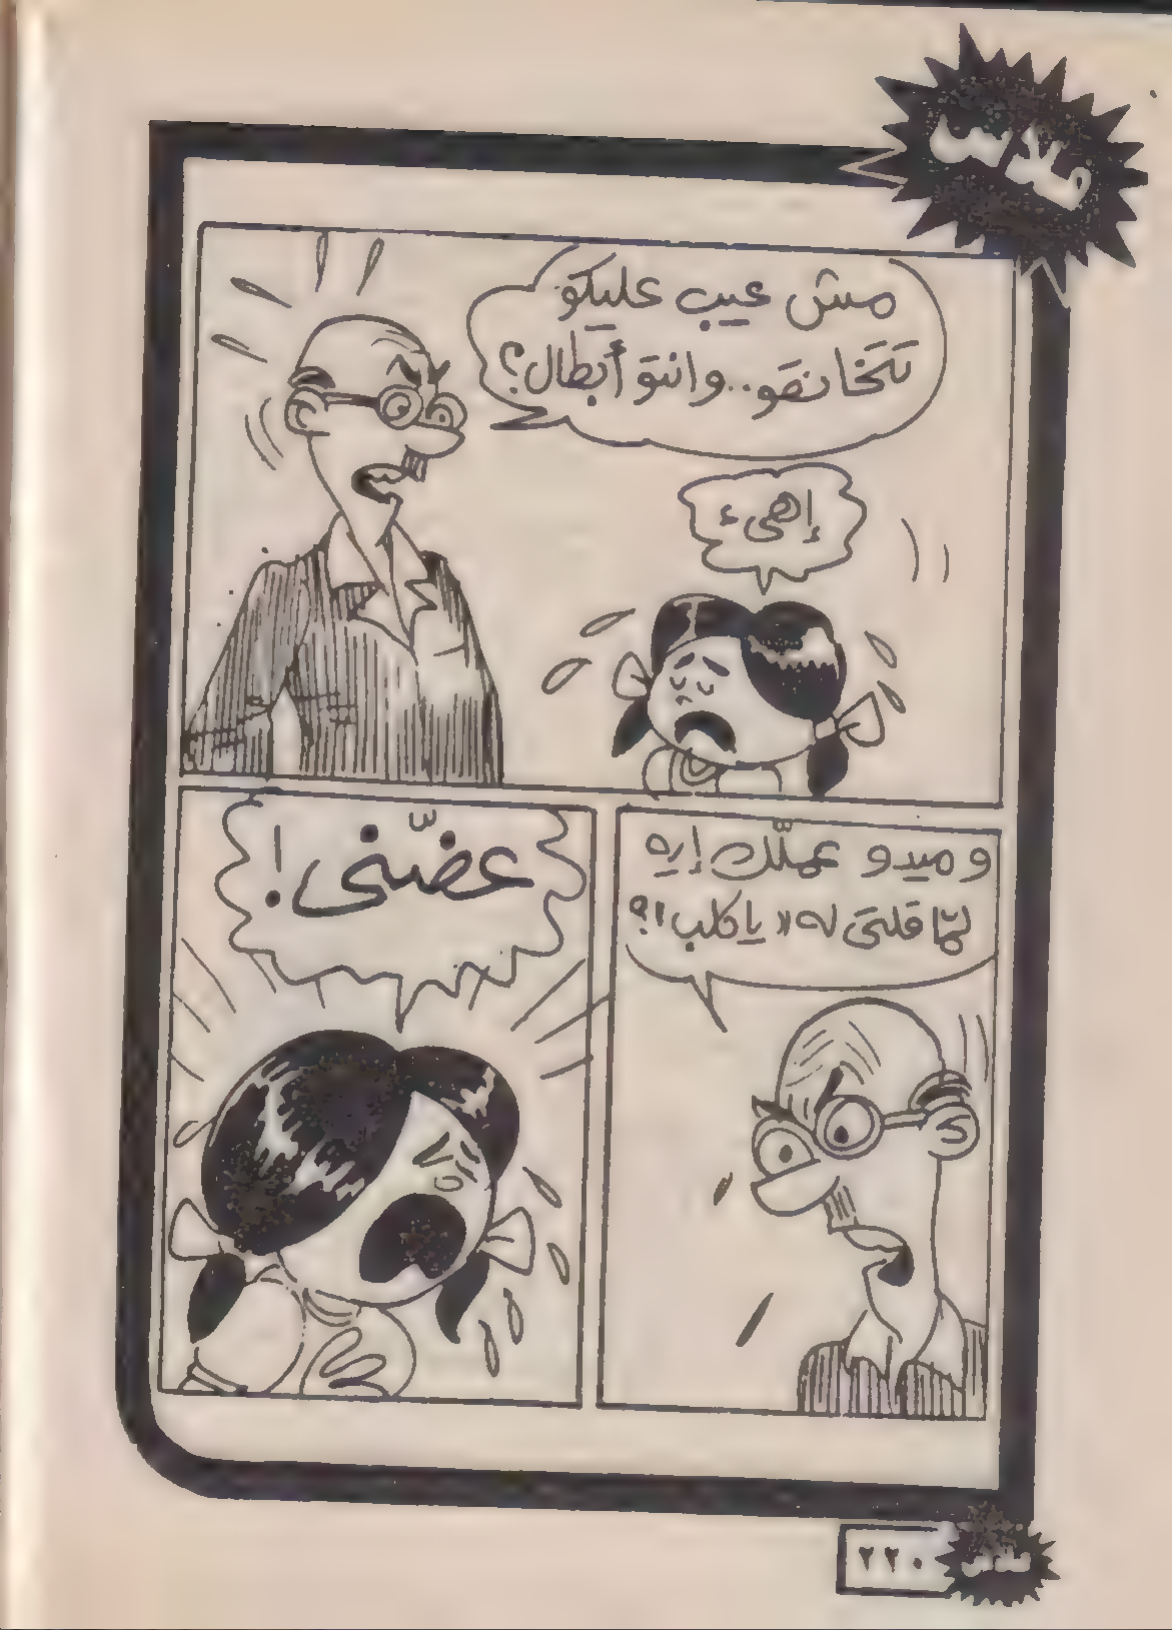 ملاس
مش عيب عليكو
تتخانقو.. وانتو أبطال؟
إهىء
وميدو عملّك إيه
لمّا قلتى له "يا كلب"؟
عضّنى!
٢٢٠
ملاس